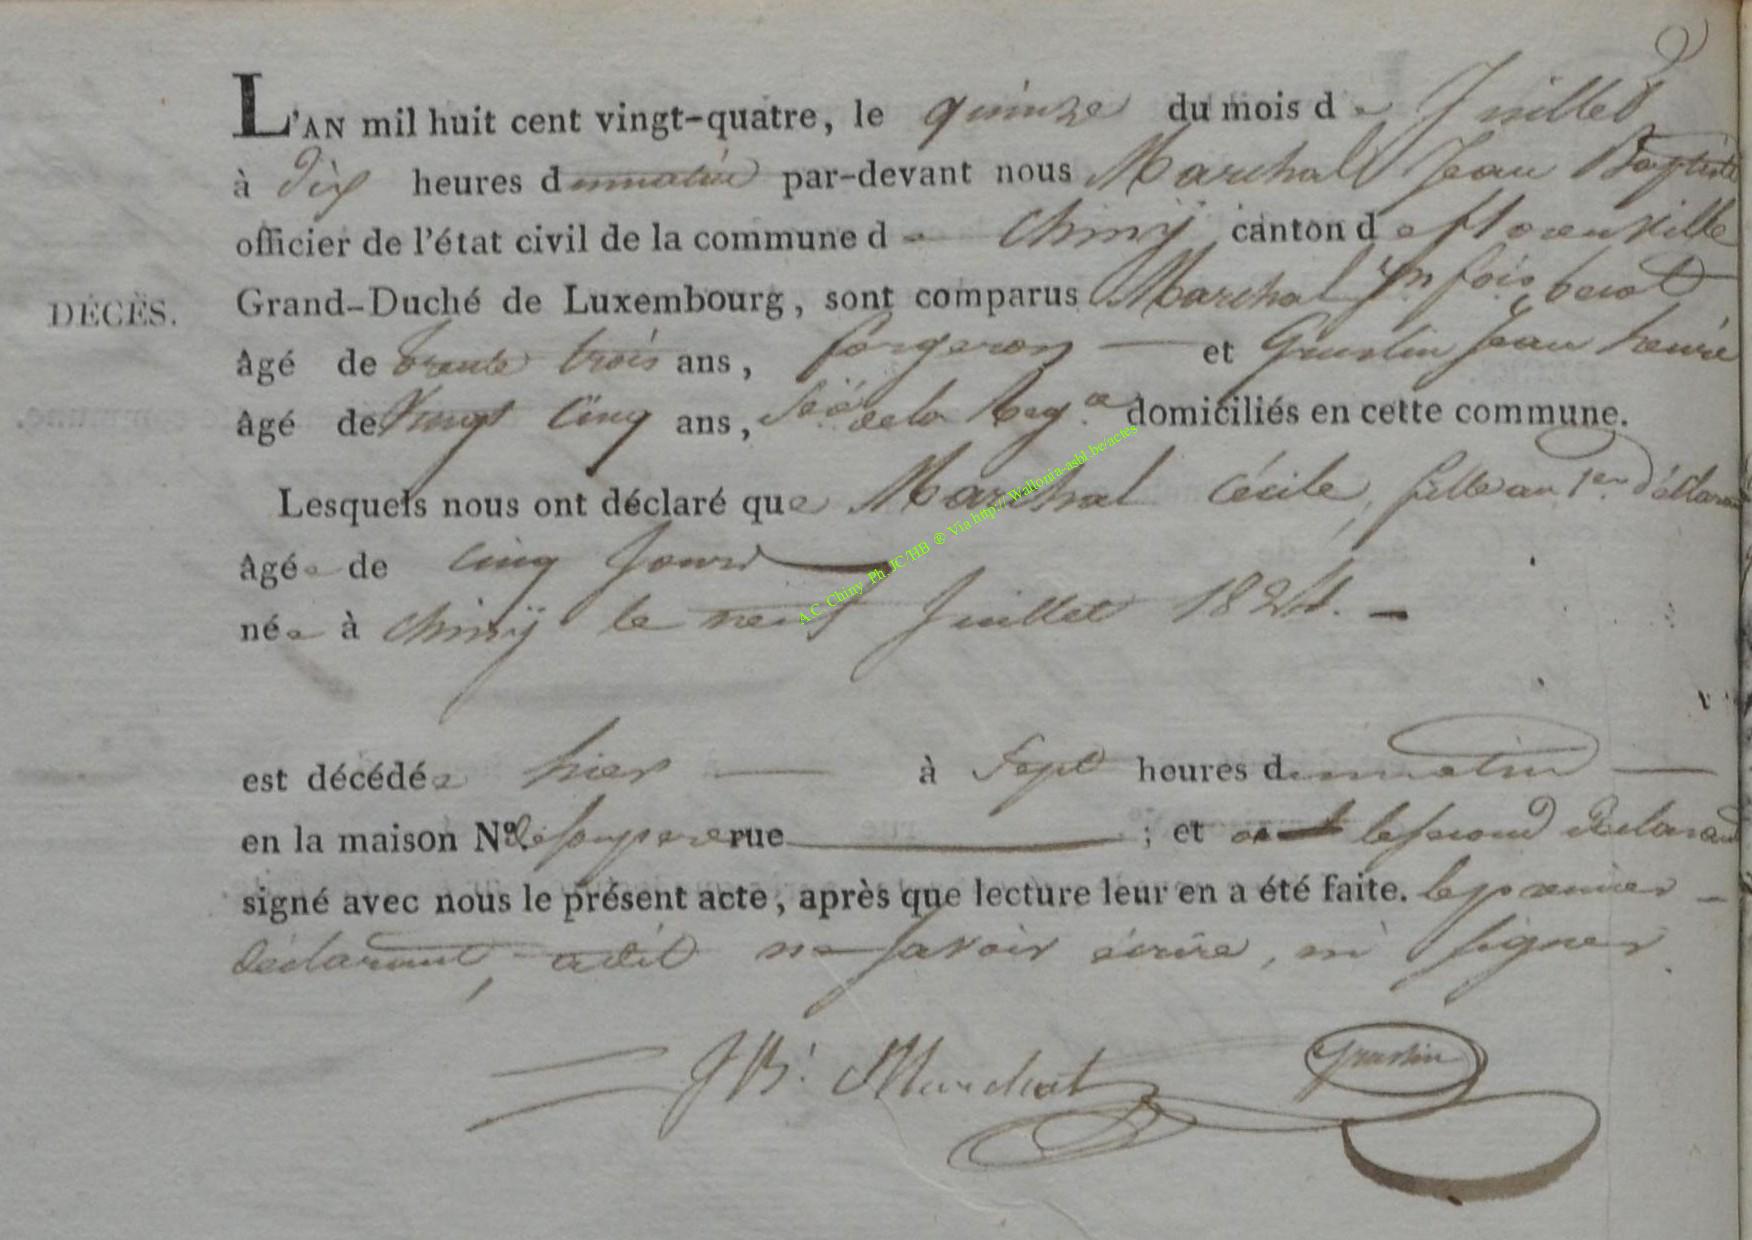 L'AN mil huit cent vingt-quatre, le quinze du mois de Juillet
à Dix heures du matin par-devant nous Marchal Jean Baptiste
officier de l'état civil de la commune de Chiny, canton de florenville
DÉCÈS. Grand-Duché de Luxembourg, sont comparus Marchal Jn fois
âgé de trente trois ans, forgeron et Grustin Jean henri
âgé de Vingt Cinq ans, de la domiciliés en cette commune.
Lesquels nous ont déclaré que Marchal Cécile, fille au 1er Déclarant
âgée de cinq Jours
née à Chiny le neuf Juillet 1824.
est décédée hier à Sept heures du matin
en la maison No. de son pere rue ; et le second Déclarant
signé avec nous le présent acte, après que lecture leur en a été faite. le premier
déclarant, a dit ne savoir écrire, ni signer.
JB: Marchal Grustin
A.C. Chiny Ph. JC/HB ® Via http://Wallonia-asbl.be/actes